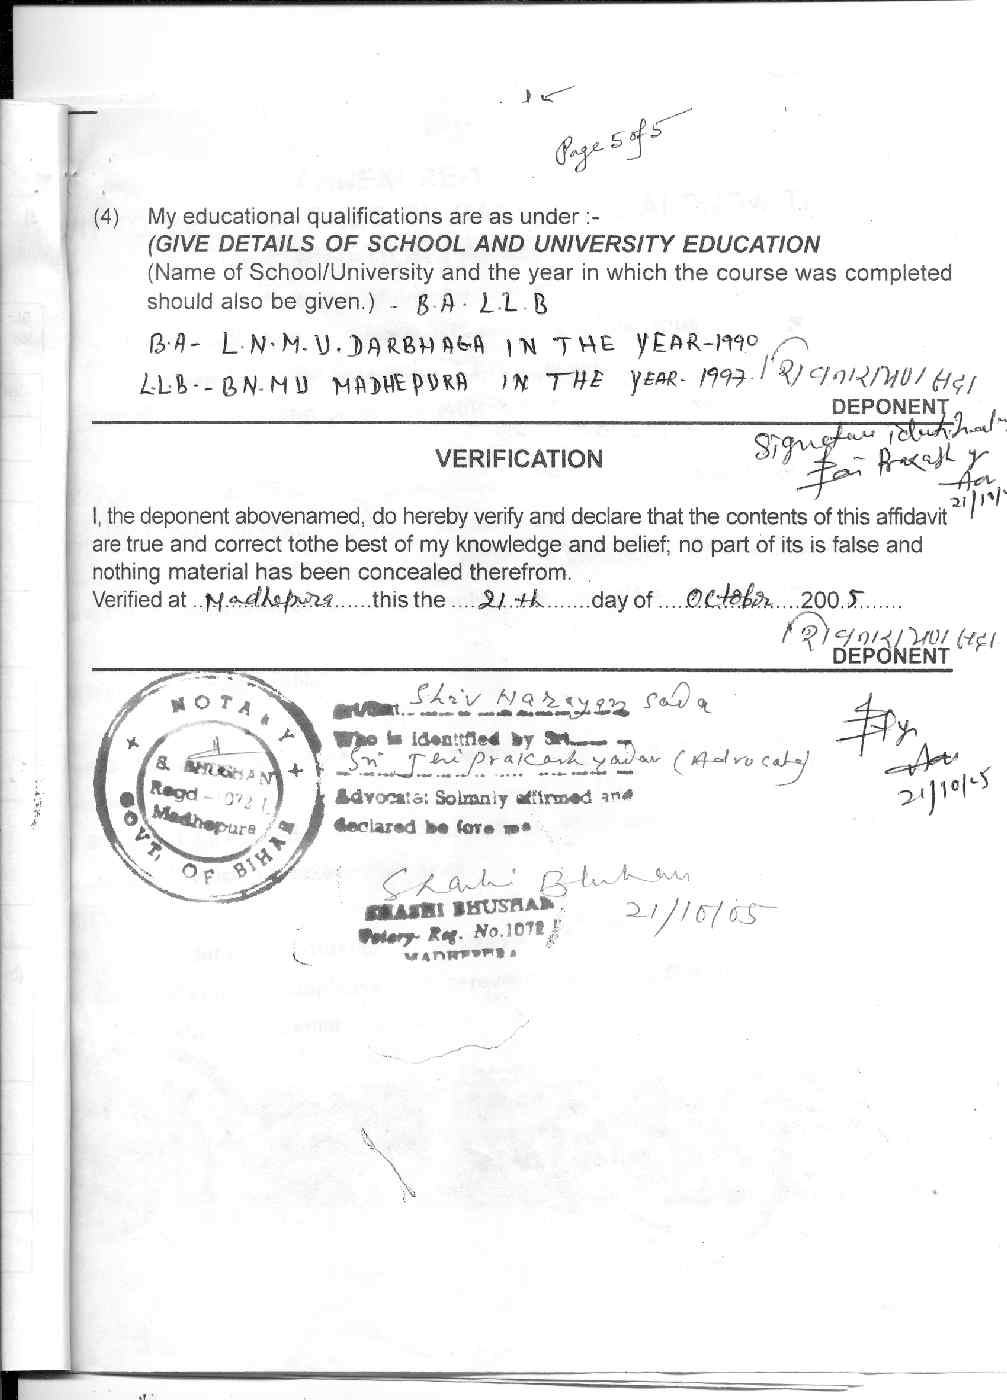 Page 5 of 5
(4) My educational qualifications are as under :-
(GIVE DETAILS OF SCHOOL AND UNIVERSITY EDUCATION
(Name of School/University and the year in which the course was completed
should also be given.) - B.A. L.L.B
B.A- L.N.M.U. DARBHAGA IN THE YEAR-1990
L.L.B.- BN.MU MADHEPURA IN THE YEAR- 1997.
शिवनारायण सदा
DEPONENT
Signature identified
Jai Prakash Y
Adv
21/10/
VERIFICATION
I, the deponent abovenamed, do hereby verify and declare that the contents of this affidavit
are true and correct tothe best of my knowledge and belief; no part of its is false and
nothing material has been concealed therefrom.
Verified at ..Madhepura......this the ....21.th.......day of ....October....2005.......
शिवनारायण सदा
DEPONENT
NOTARY
S. BHUSHAN
Regd - 1072
Madhepura
GOVT. OF BIHAR
Shiv Narayan Sada
Who is identified by Sri
Sri Jai Prakash Yadav (Advocate)
Advocate: Solmanly affirmed and
declared be fore me
21/10/05
Shashi Bhushan
21/10/05
SHASHI BHUSHAN
Notary- Reg. No.1072
MADHEPURA